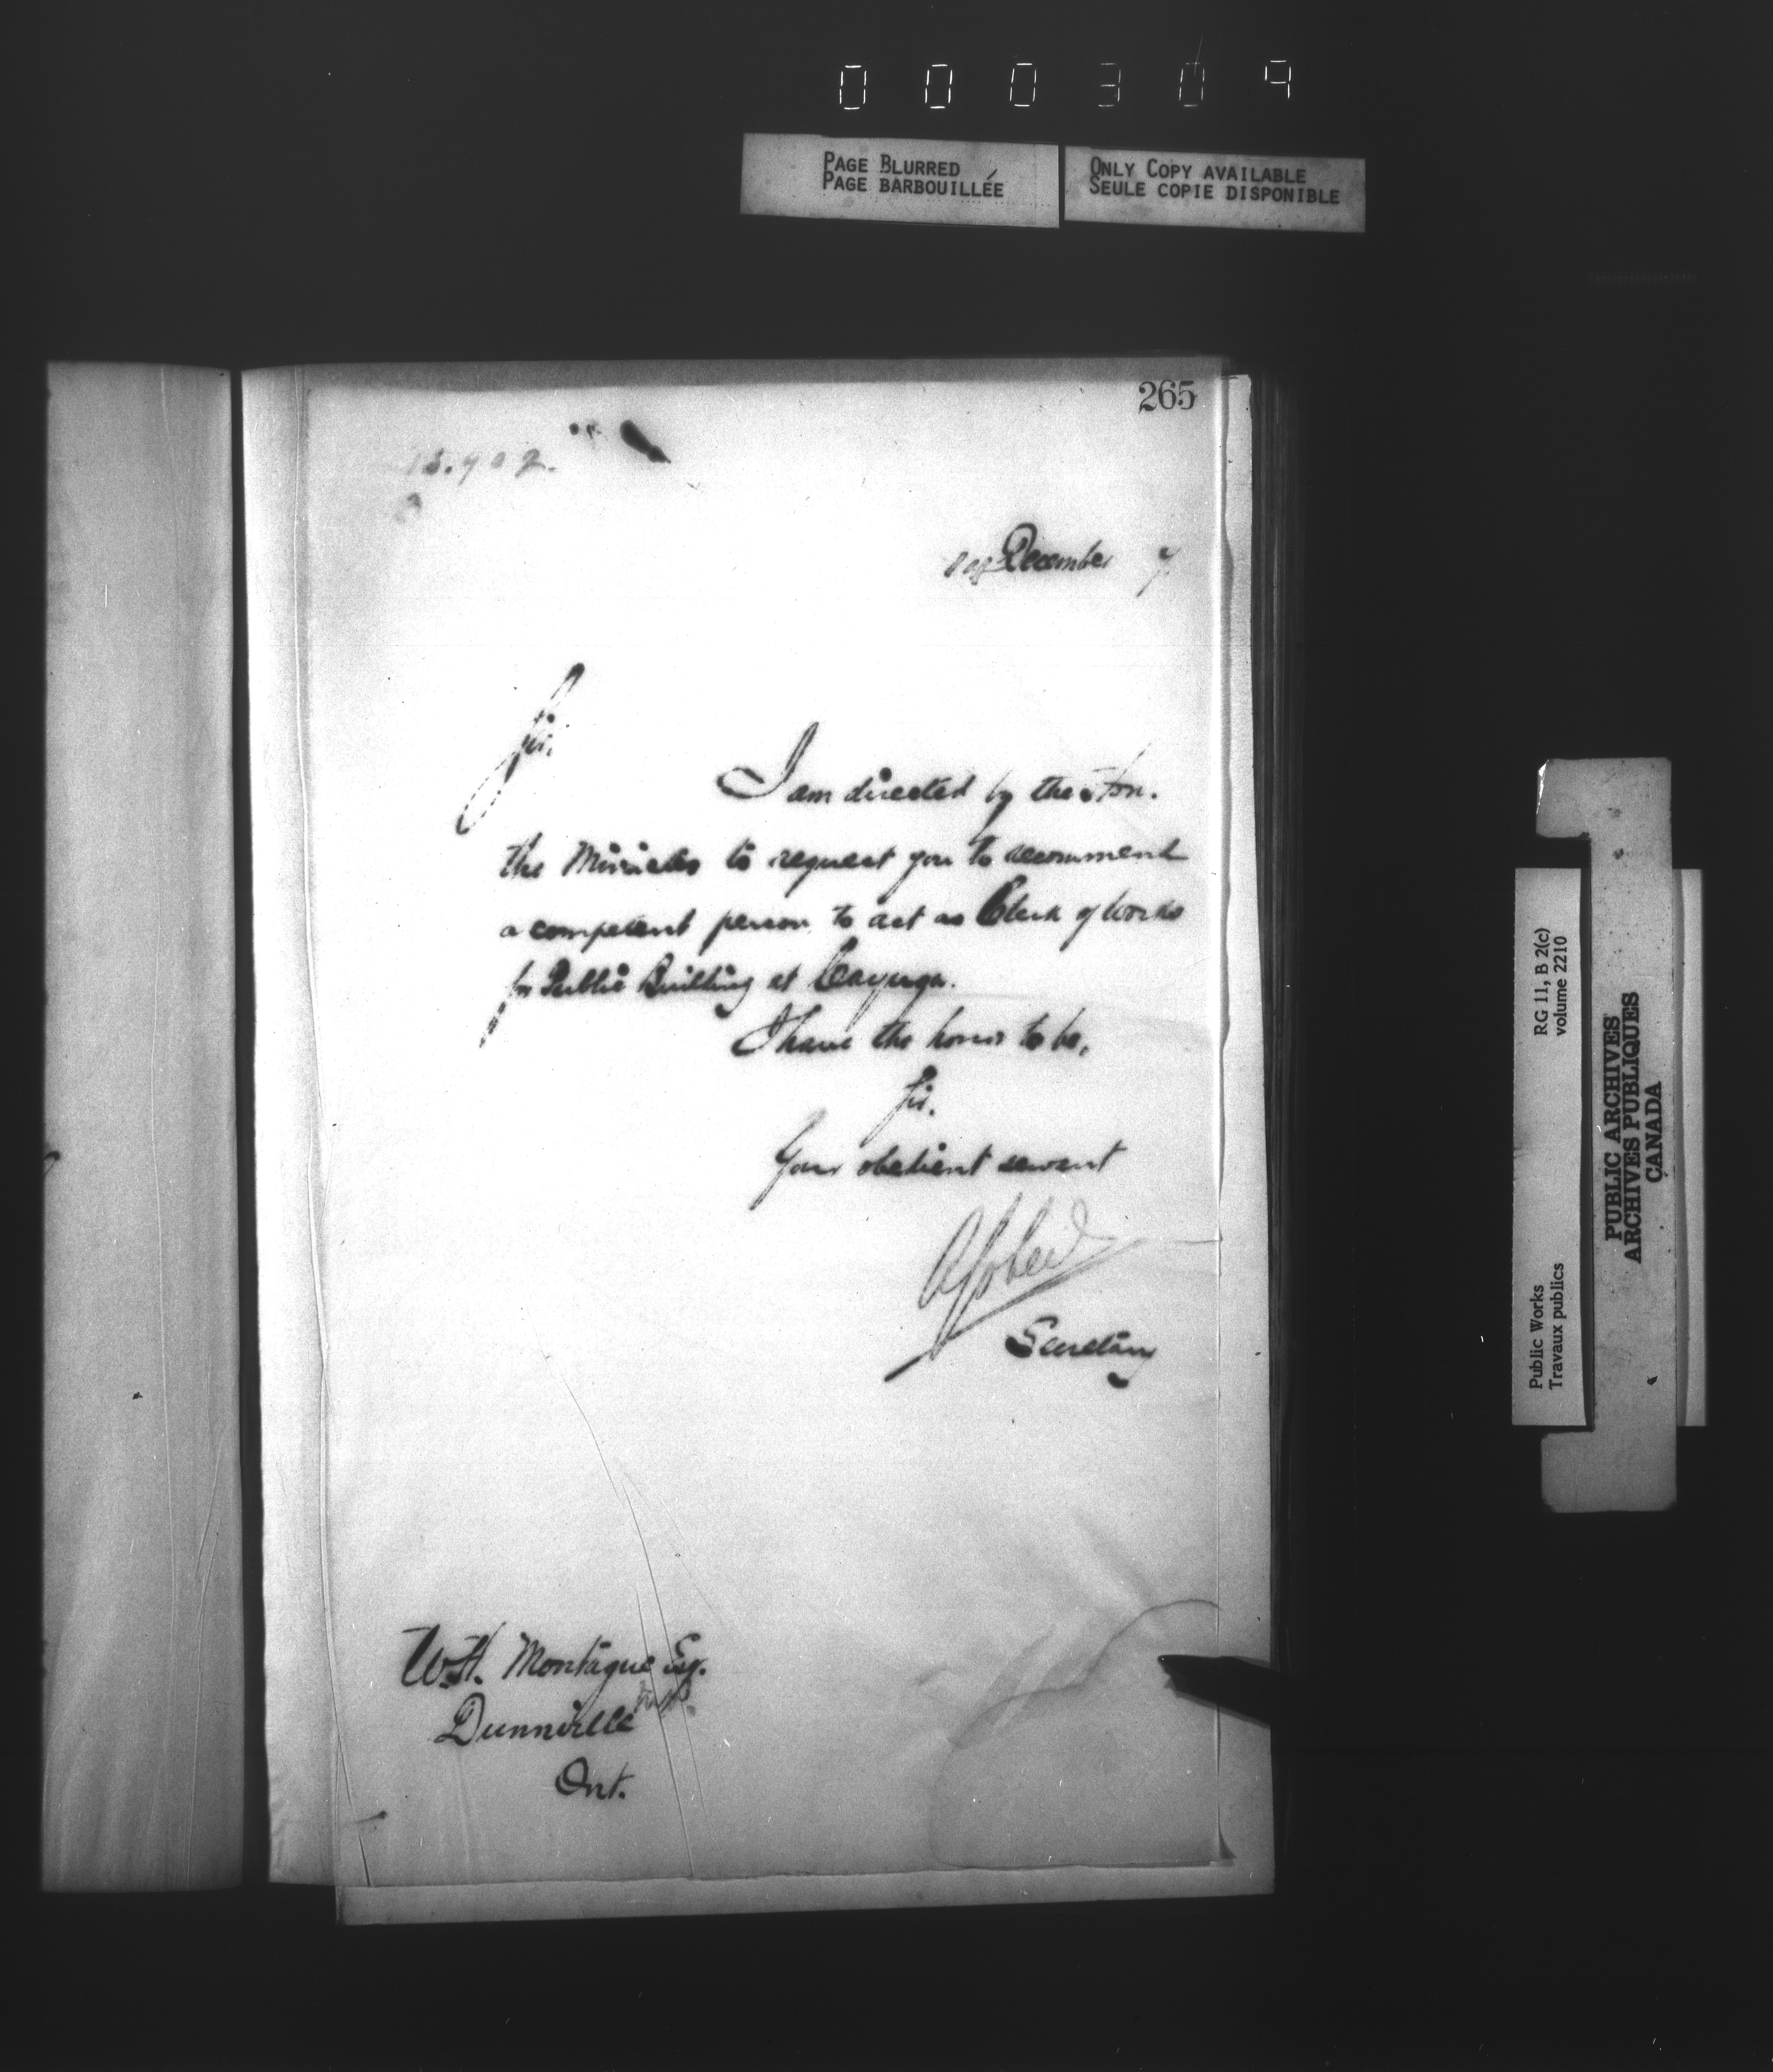 000309
PAGE BLURRED
PAGE BARBOUILLÉE
ONLY COPY AVAILABLE
SEULE COPIE DISPONIBLE
265
December 7
Sir,
I am directed by the Hon.
the Minister to request you to recommend
a competent person to act as Clerk of Works
for Public Building at Cayuga.
I have the honor to be,
Sir,
Your obedient servant
Secretary
W.H. Montague Esq.
Dunnville
Ont.
RG 11, B 2(c)
volume 2210
Public Works
Travaux publics
PUBLIC ARCHIVES
ARCHIVES PUBLIQUES
CANADA